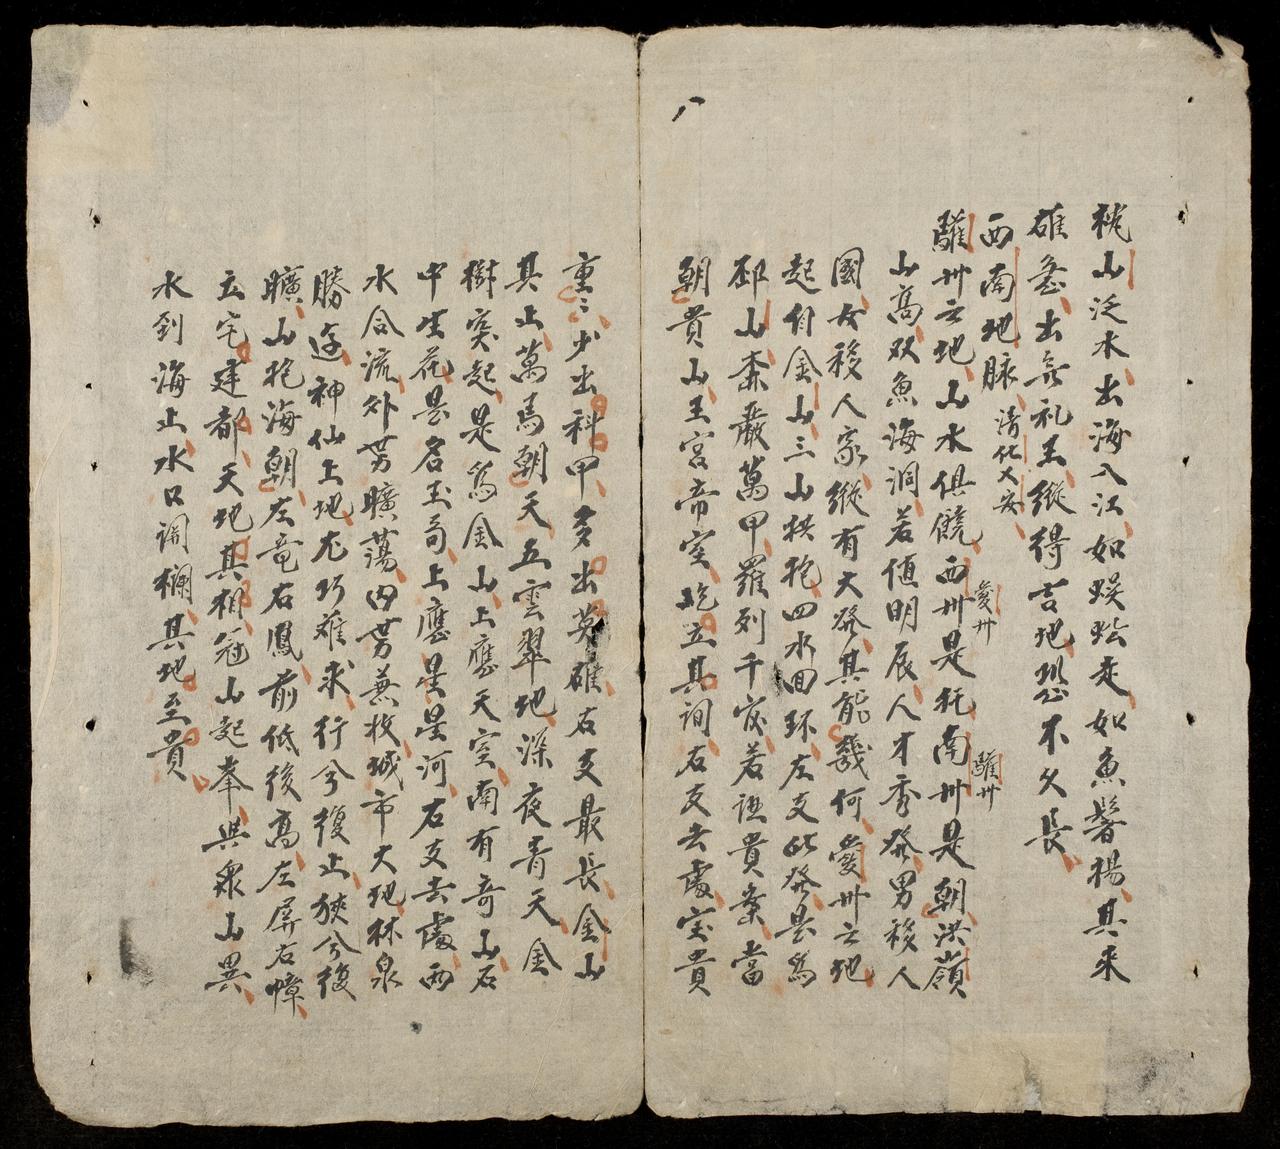 八
桃山泛水出海入江如蜈蚣走如魚鬐揚其来
雄急出无礼王縱得吉地恐不久長
西南地脉 清化乂安
驩卅云地山水俱饒西卅是托南卅是朝洪嶺
愛卅 驩卅
山高双魚海洞若值明辰人才秀發男移人
國女移人家縱有大發其能幾何愛卅云地
起自金山三山拱抱四水回环左支此發是爲
邳山森嚴萬甲羅列千官若
貴案當
朝貴山王宮帝室屹立其詞右支去處宝貴
重〻少出科甲多出英雄右支最長金山
其上萬馬朝天五雲翠地深夜青天金
樹突起是爲金山上應天室南有奇山石
中生花是名玉荀上應星星河右支去處西
水合流外势曠蕩内势兼收城市大地林泉
勝迹神仙上地尤巧难求行兮復止狹兮復
曠山抱海朝左竜右鳳前低後高左屏右幛
立宅建都天地其相冠山起峯与衆山異
水到海止水口闭欄其地至貴